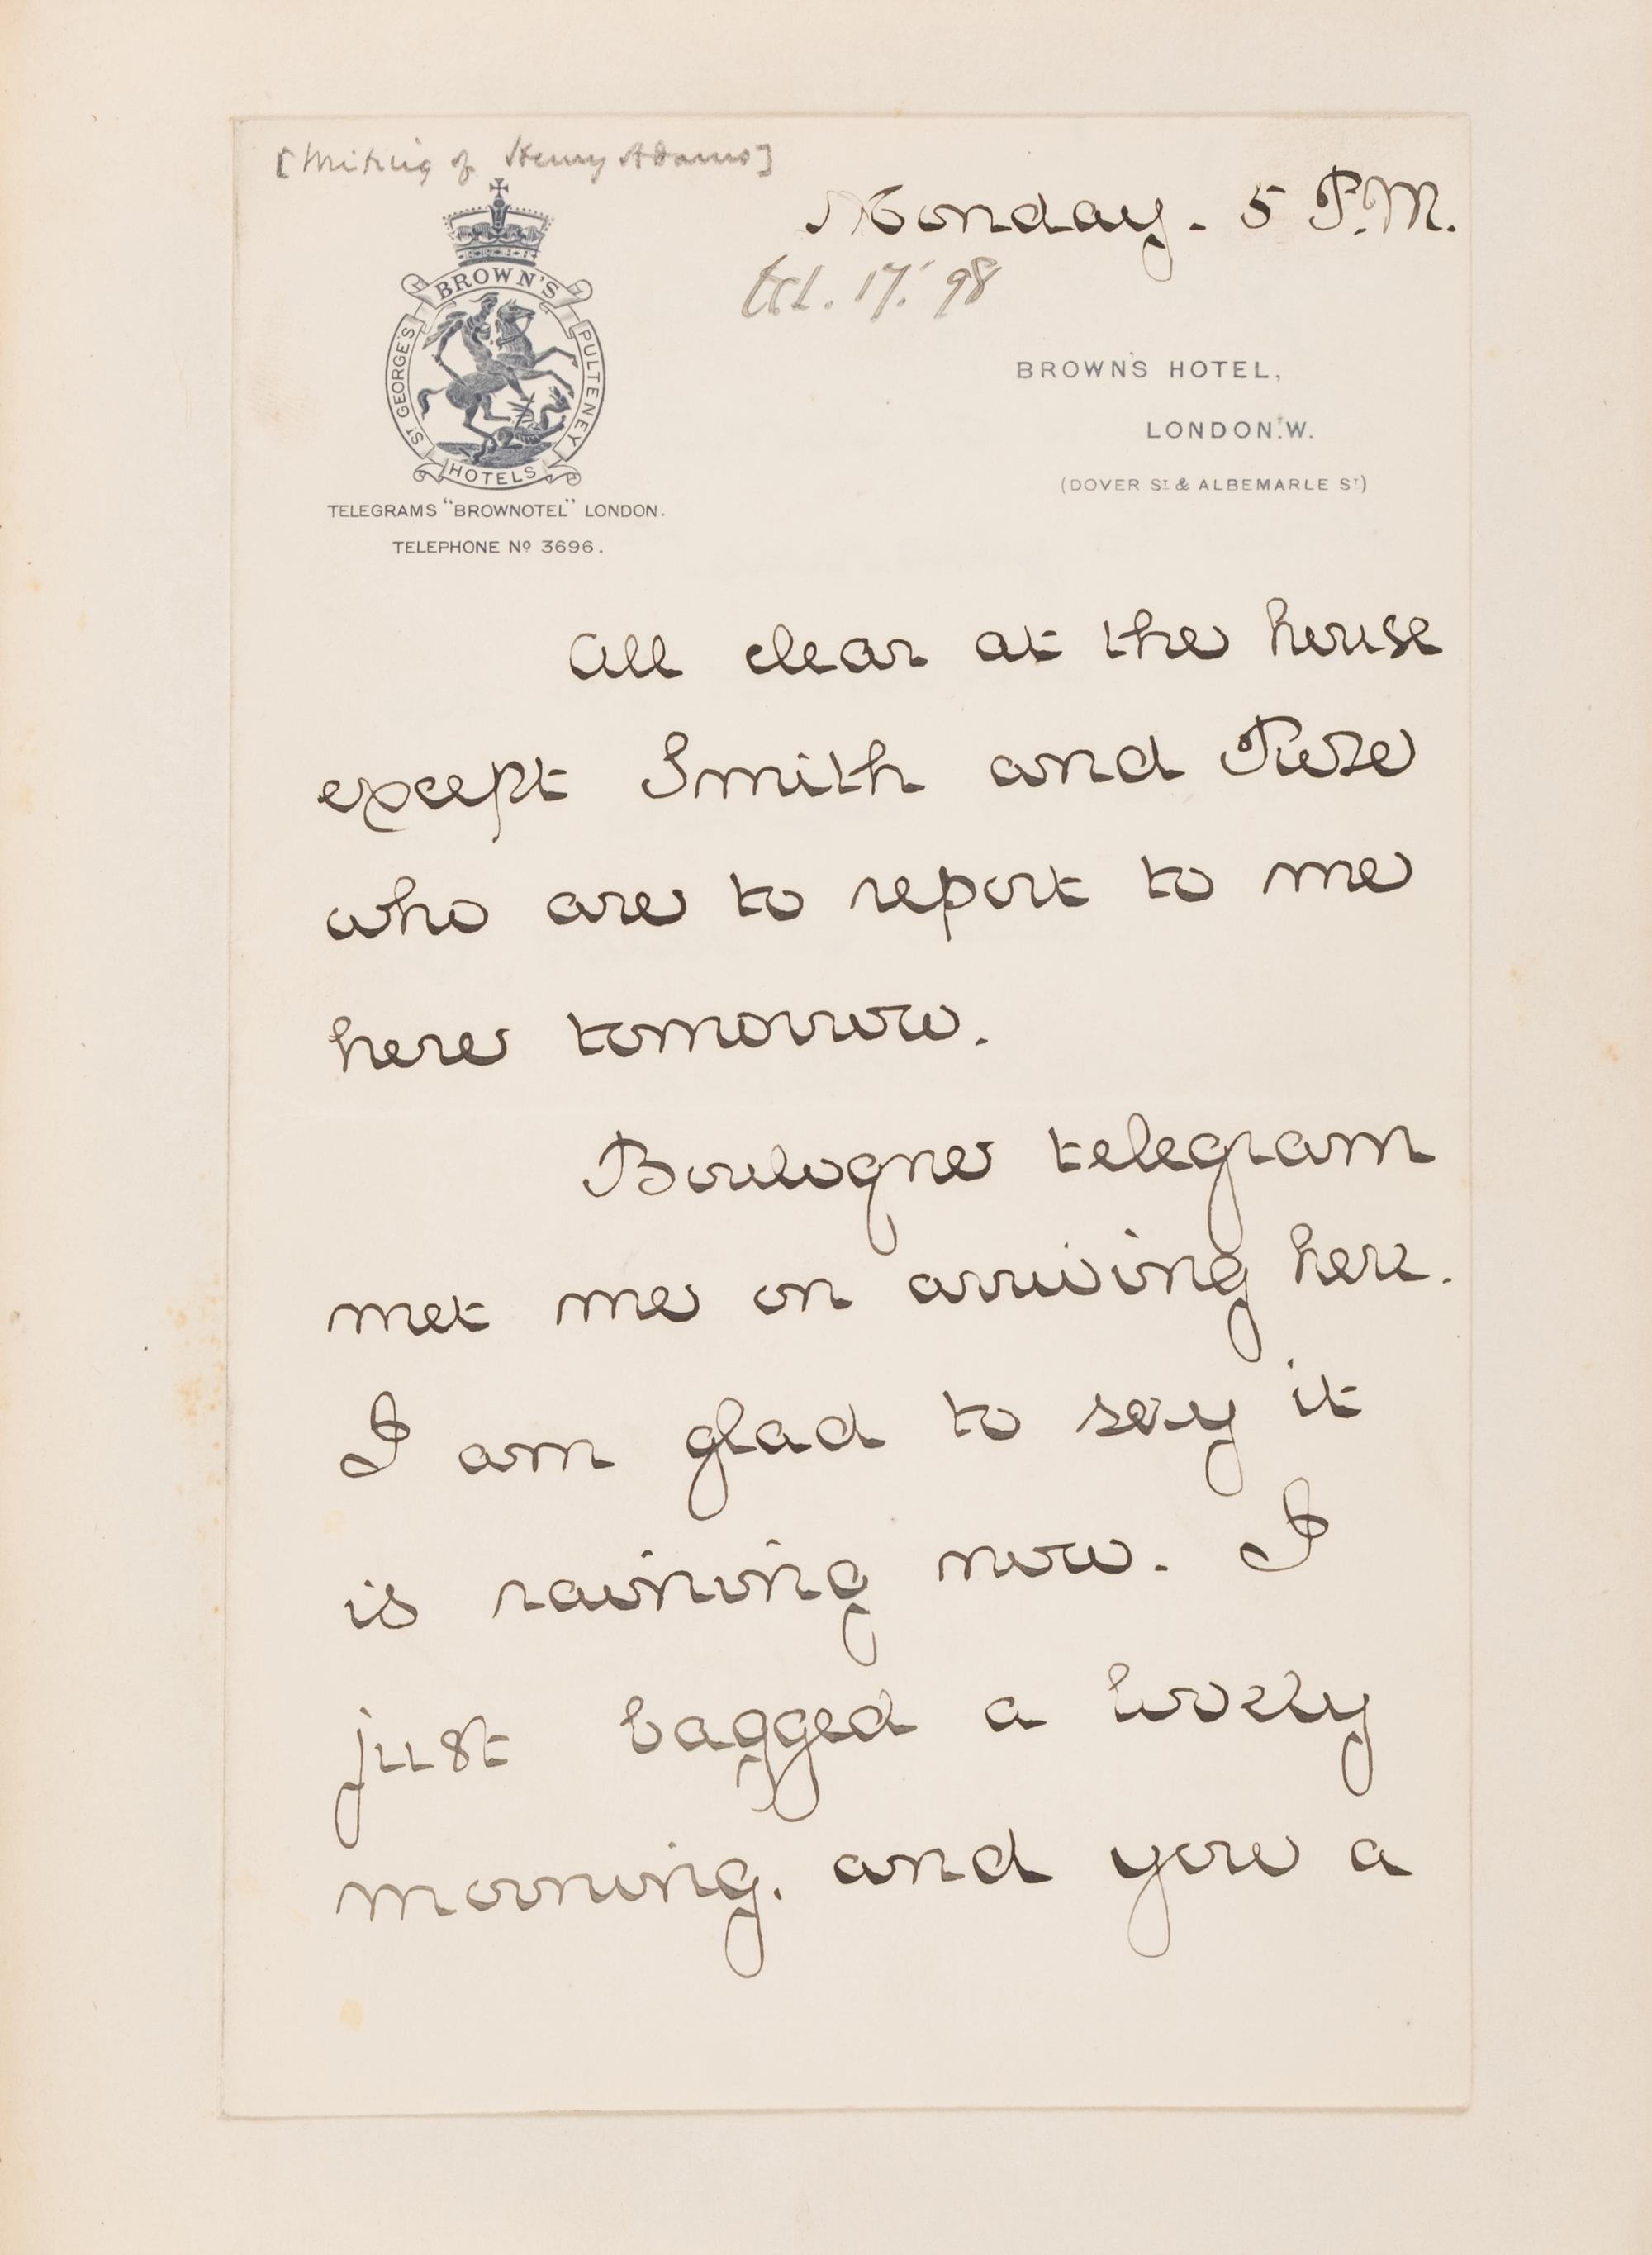 [Writing of Henry Adams]
Monday. 5 P.M.
Oct. 17. '98
BROWN'S
ST GEORGE'S
PULTENEY
HOTELS
TELEGRAMS "BROWNOTEL" LONDON.
TELEPHONE No 3696.
BROWN'S HOTEL,
LONDON. W.
(DOVER ST & ALBEMARLE ST)
All clear at the house
except Smith and
who are to report to me
here tomorrow.
Boulogne telegram
met me on arriving here.
I am glad to say it
is raining now. I
just bagged a lovely
morning. and you a